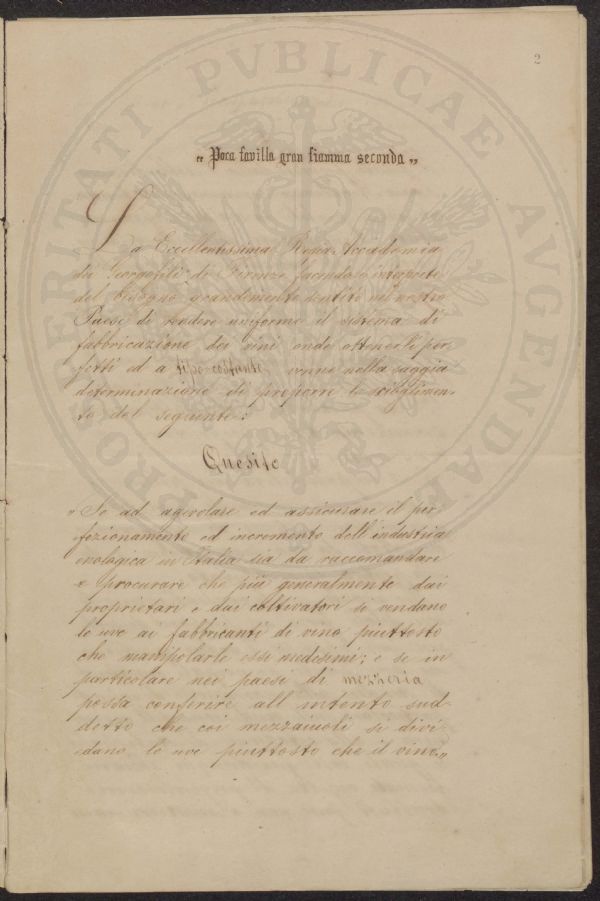 2
„ Poca favilla gran fiamma seconda „
La Eccellentissima Reale Accademia
dei Georgofili di Firenze facendosi interprete
del bisogno grandemente sentito nel nostro
Paese di rendere uniforme il sistema di
fabbricazione dei vini onde ottenerli per-
fetti ed a tipo costante, venne nella saggia
determinazione di proporre lo scioglimen-
to del seguente:
Quesito
„ Se ad agevolare ed assicurare il per
fezionamento ed incremento dell'industria
enologica in Italia sia da raccomandare
e procurare che più generalmente dai
proprietari e dai coltivatori si vendano
le uve ai fabbricanti di vino piuttosto
che manipolarle essi medesimi; e se in
particolare nei paesi di mezzeria
possa conferire all intento sud-
detto che coi mezzaiuoli si divi-
dano le uve piuttosto che il vino„
PROSPERITATI PVBLICAE AVGENDAE